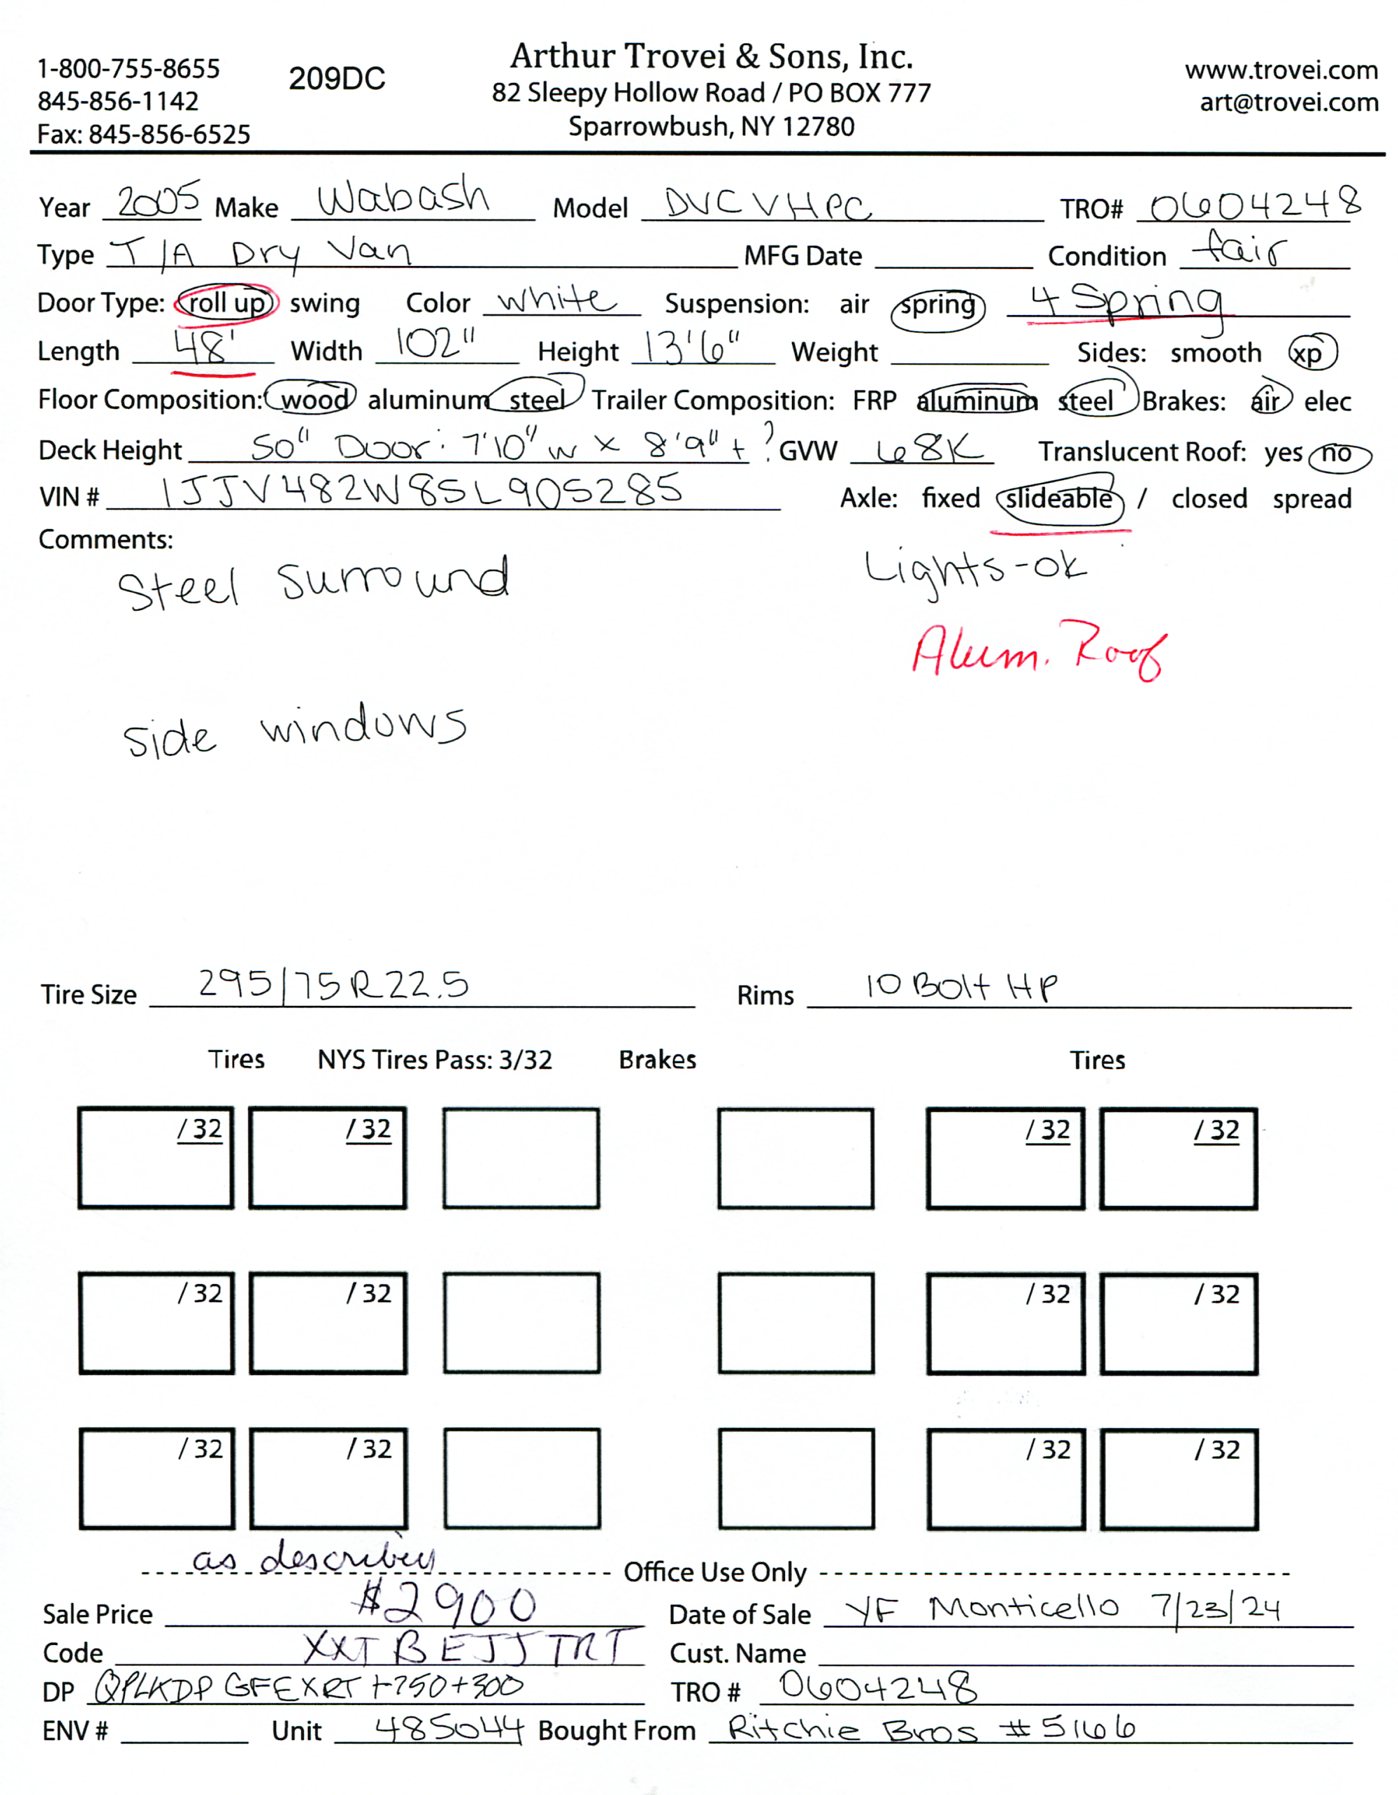 1-800-755-8655
845-856-1142
Fax: 845-856-6525
209DC
Arthur Trovei & Sons, Inc.
82 Sleepy Hollow Road / PO BOX 777
Sparrowbush, NY 12780
www.trovei.com
art@trovei.com
Year 2005 Make Wabash Model DVCVHPC TRO# 0604248
Type T/A Dry Van MFG Date Condition fair
Door Type: roll up swing Color white Suspension: air spring 4 Spring
Length 48' Width 102" Height 13'6" Weight Sides: smooth xp
Floor Composition: wood aluminum steel Trailer Composition: FRP aluminum steel Brakes: air elec
Deck Height 50" Door: 7'10" w x 8'9" t ? GVW 68K Translucent Roof: yes no
VIN # 1JJV482W85L905285 Axle: fixed slideable / closed spread
Comments:
Steel surround Lights-ok
Alum. Roof
side windows
Tire Size 295/75R22.5 Rims 10 Bolt HP
Tires NYS Tires Pass: 3/32 Brakes Tires
/ 32 / 32 / 32 / 32
/ 32 / 32 / 32 / 32
/ 32 / 32 / 32 / 32
as described
Office Use Only
Sale Price $2900 Date of Sale YF Monticello 7/23/24
Code XXTBEJJTRT Cust. Name
DP QPLKDP GFEXRT +750+300 TRO # 0604248
ENV # Unit 485044 Bought From Ritchie Bros #5166